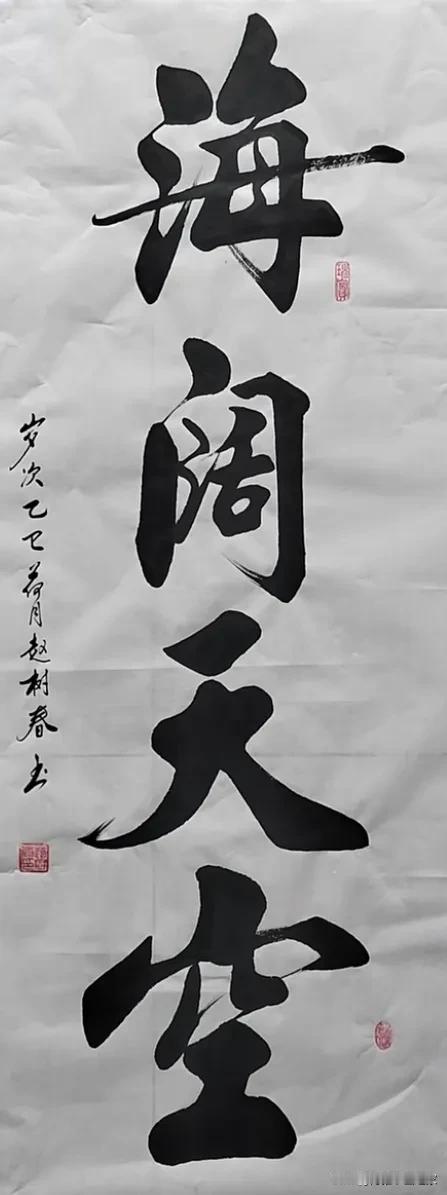 海阔天空
岁次乙巳荷月赵树春书